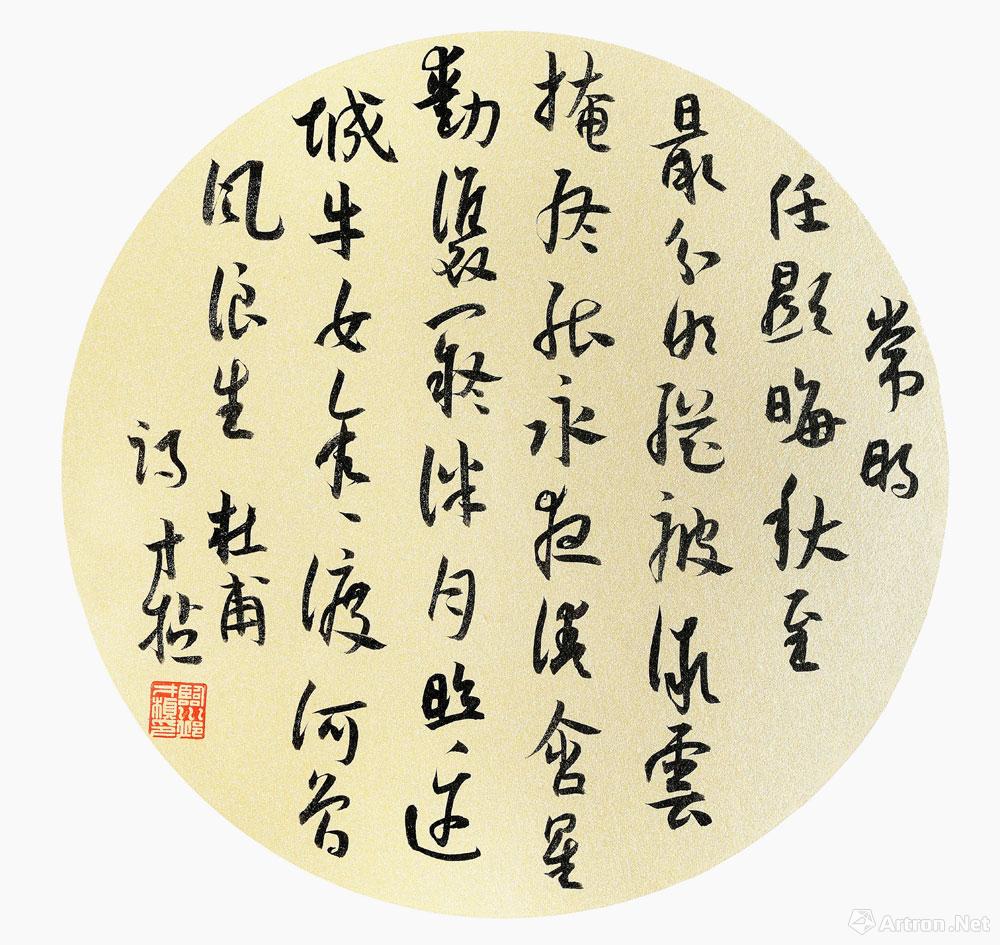 常時
任顯晦秋至
最分明縱被微雲
掩終能永夜清含星
動雙闕伴月照邊
城牛女年々渡何曾
風浪生 杜甫
詩 才
Artron.Net